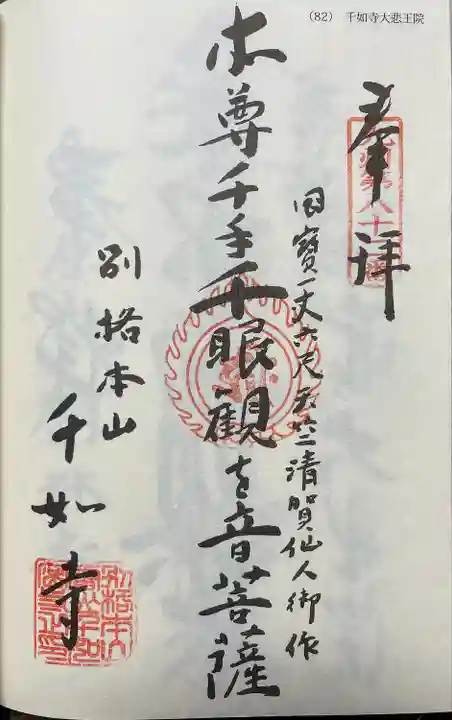 (82) 千如寺大悲王院
奉拝
九州第八十二番
国宝一丈六尺 清賀仙人御作
本尊千手千眼観世音菩薩
別格本山
千如寺